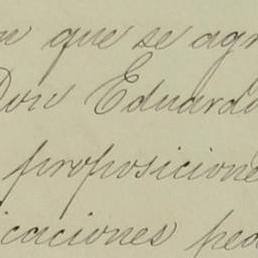 que se agr
Don Eduardo
proposicione
icaciones ped